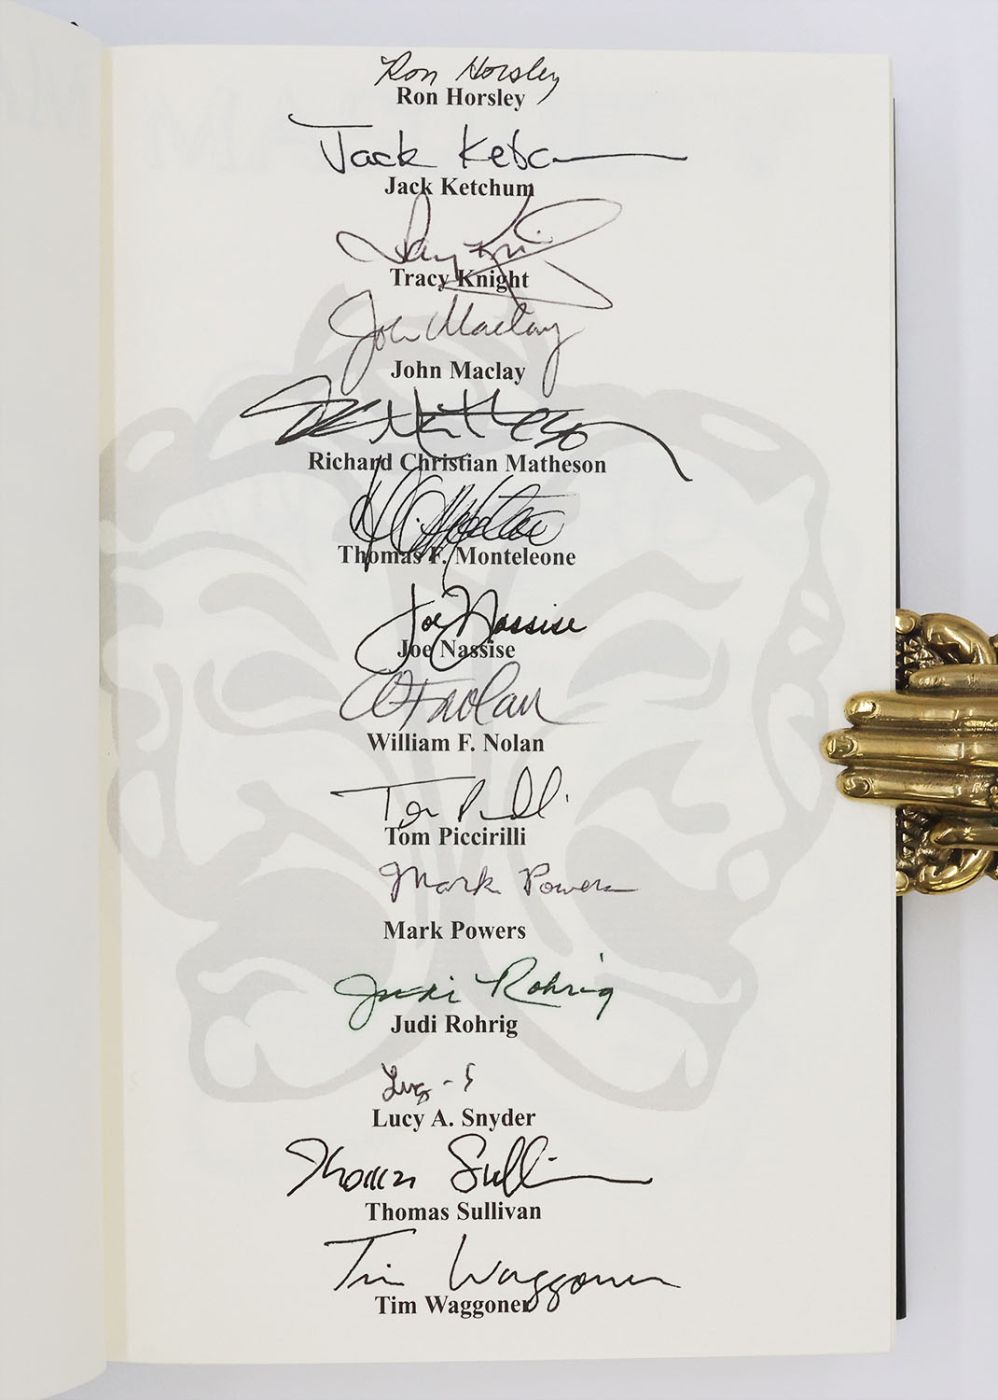 Ron Horsley
Ron Horsley
Jack Ketc
Jack Ketchum
Tracy Knight
John Maclay
John Maclay
Matheson
Richard Christian Matheson
Thomas F. Monteleone
Joe Nassise
Joe Nassise
WFNolan
William F. Nolan
Tom
Tom Piccirilli
Mark Powers
Mark Powers
Judi Rohrig
Judi Rohrig
Lucy A. Snyder
Thomas Sullivan
Thomas Sullivan
Tim Waggoner
Tim Waggoner